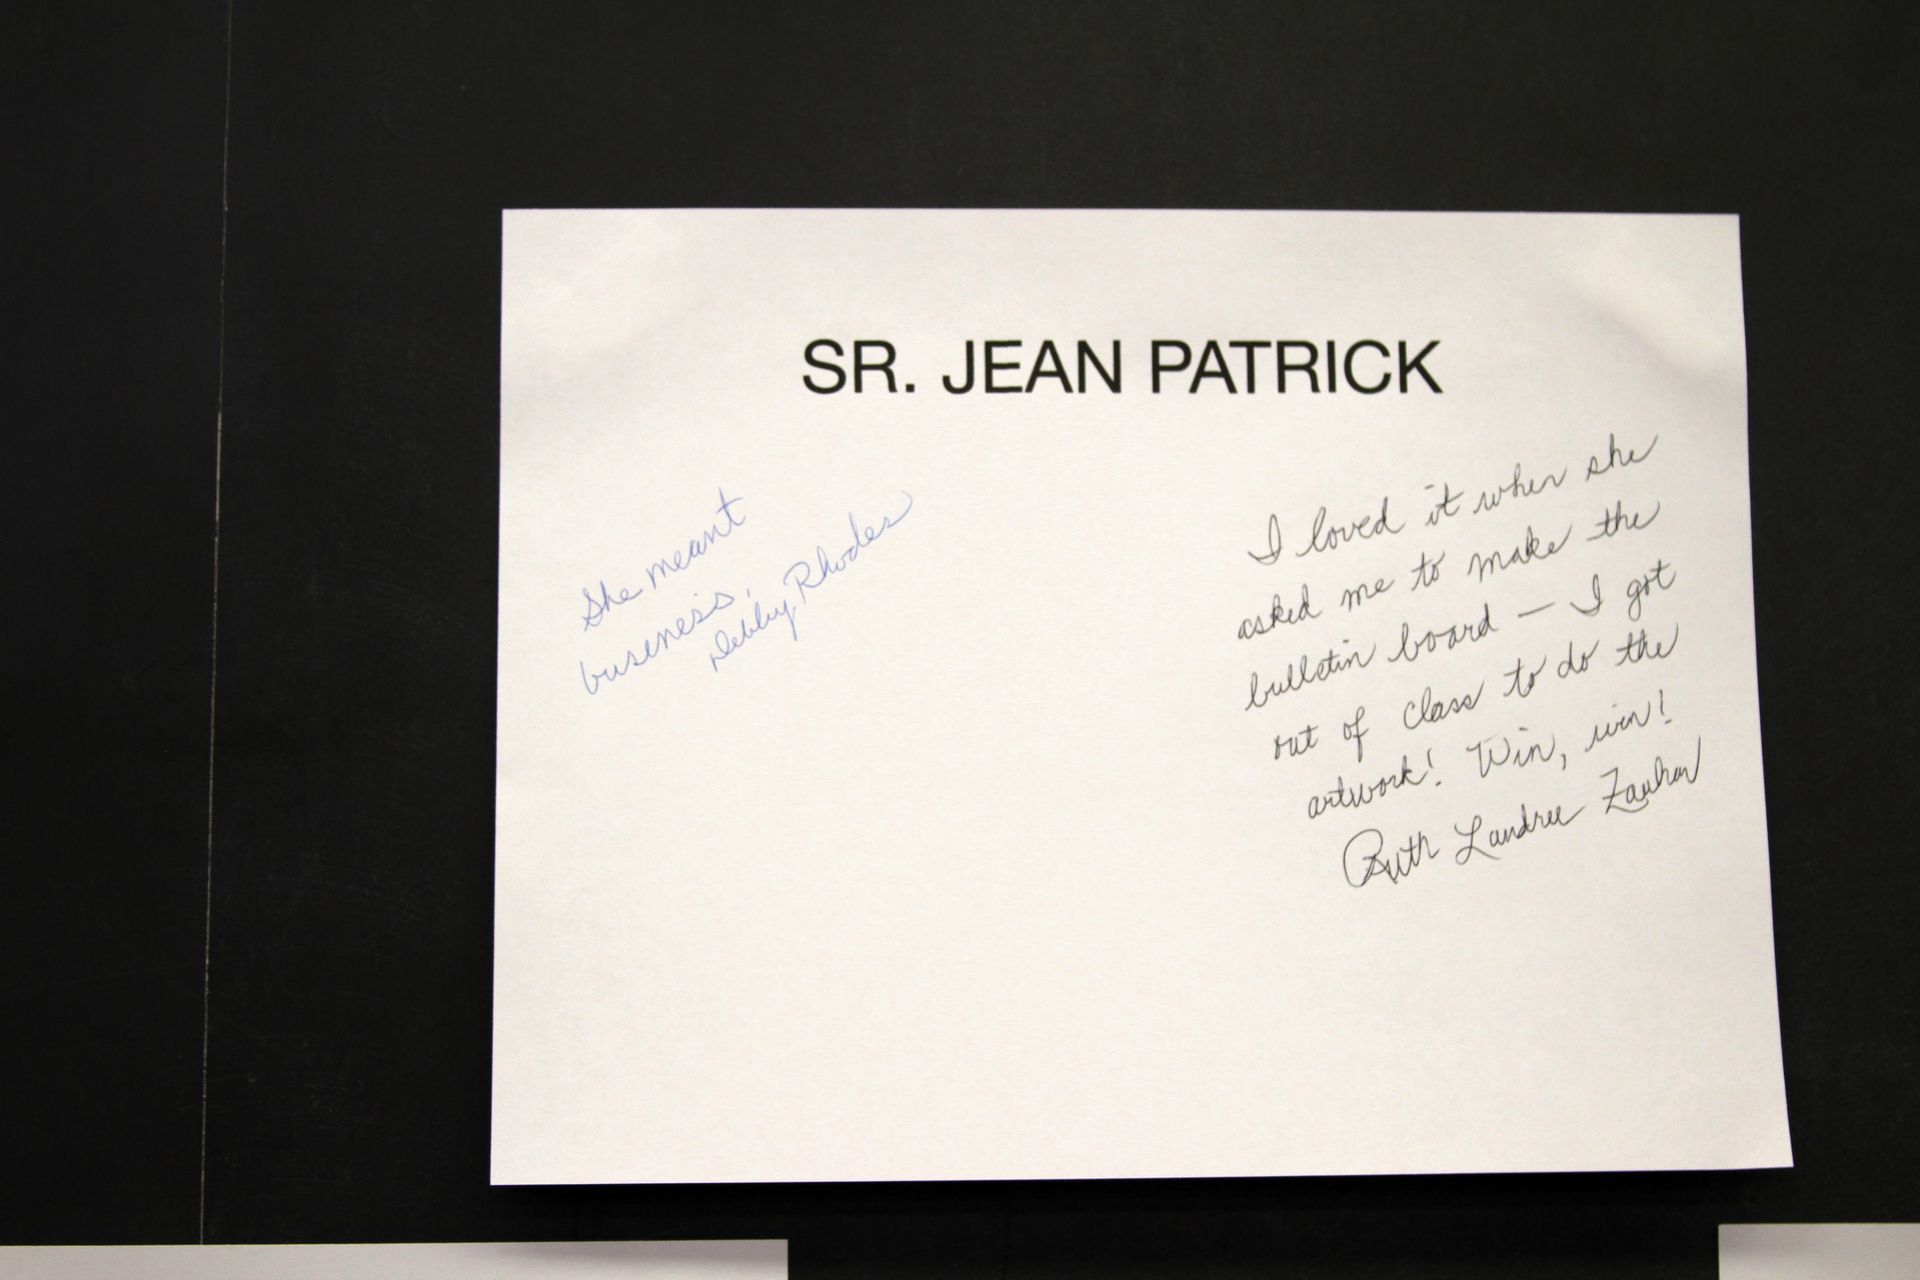 SR. JEAN PATRICK
She meant
business,
Debby Rhodes
I loved it when she
asked me to make the
bulletin board — I got
out of class to do the
artwork! Win, win!
Ruth Landree